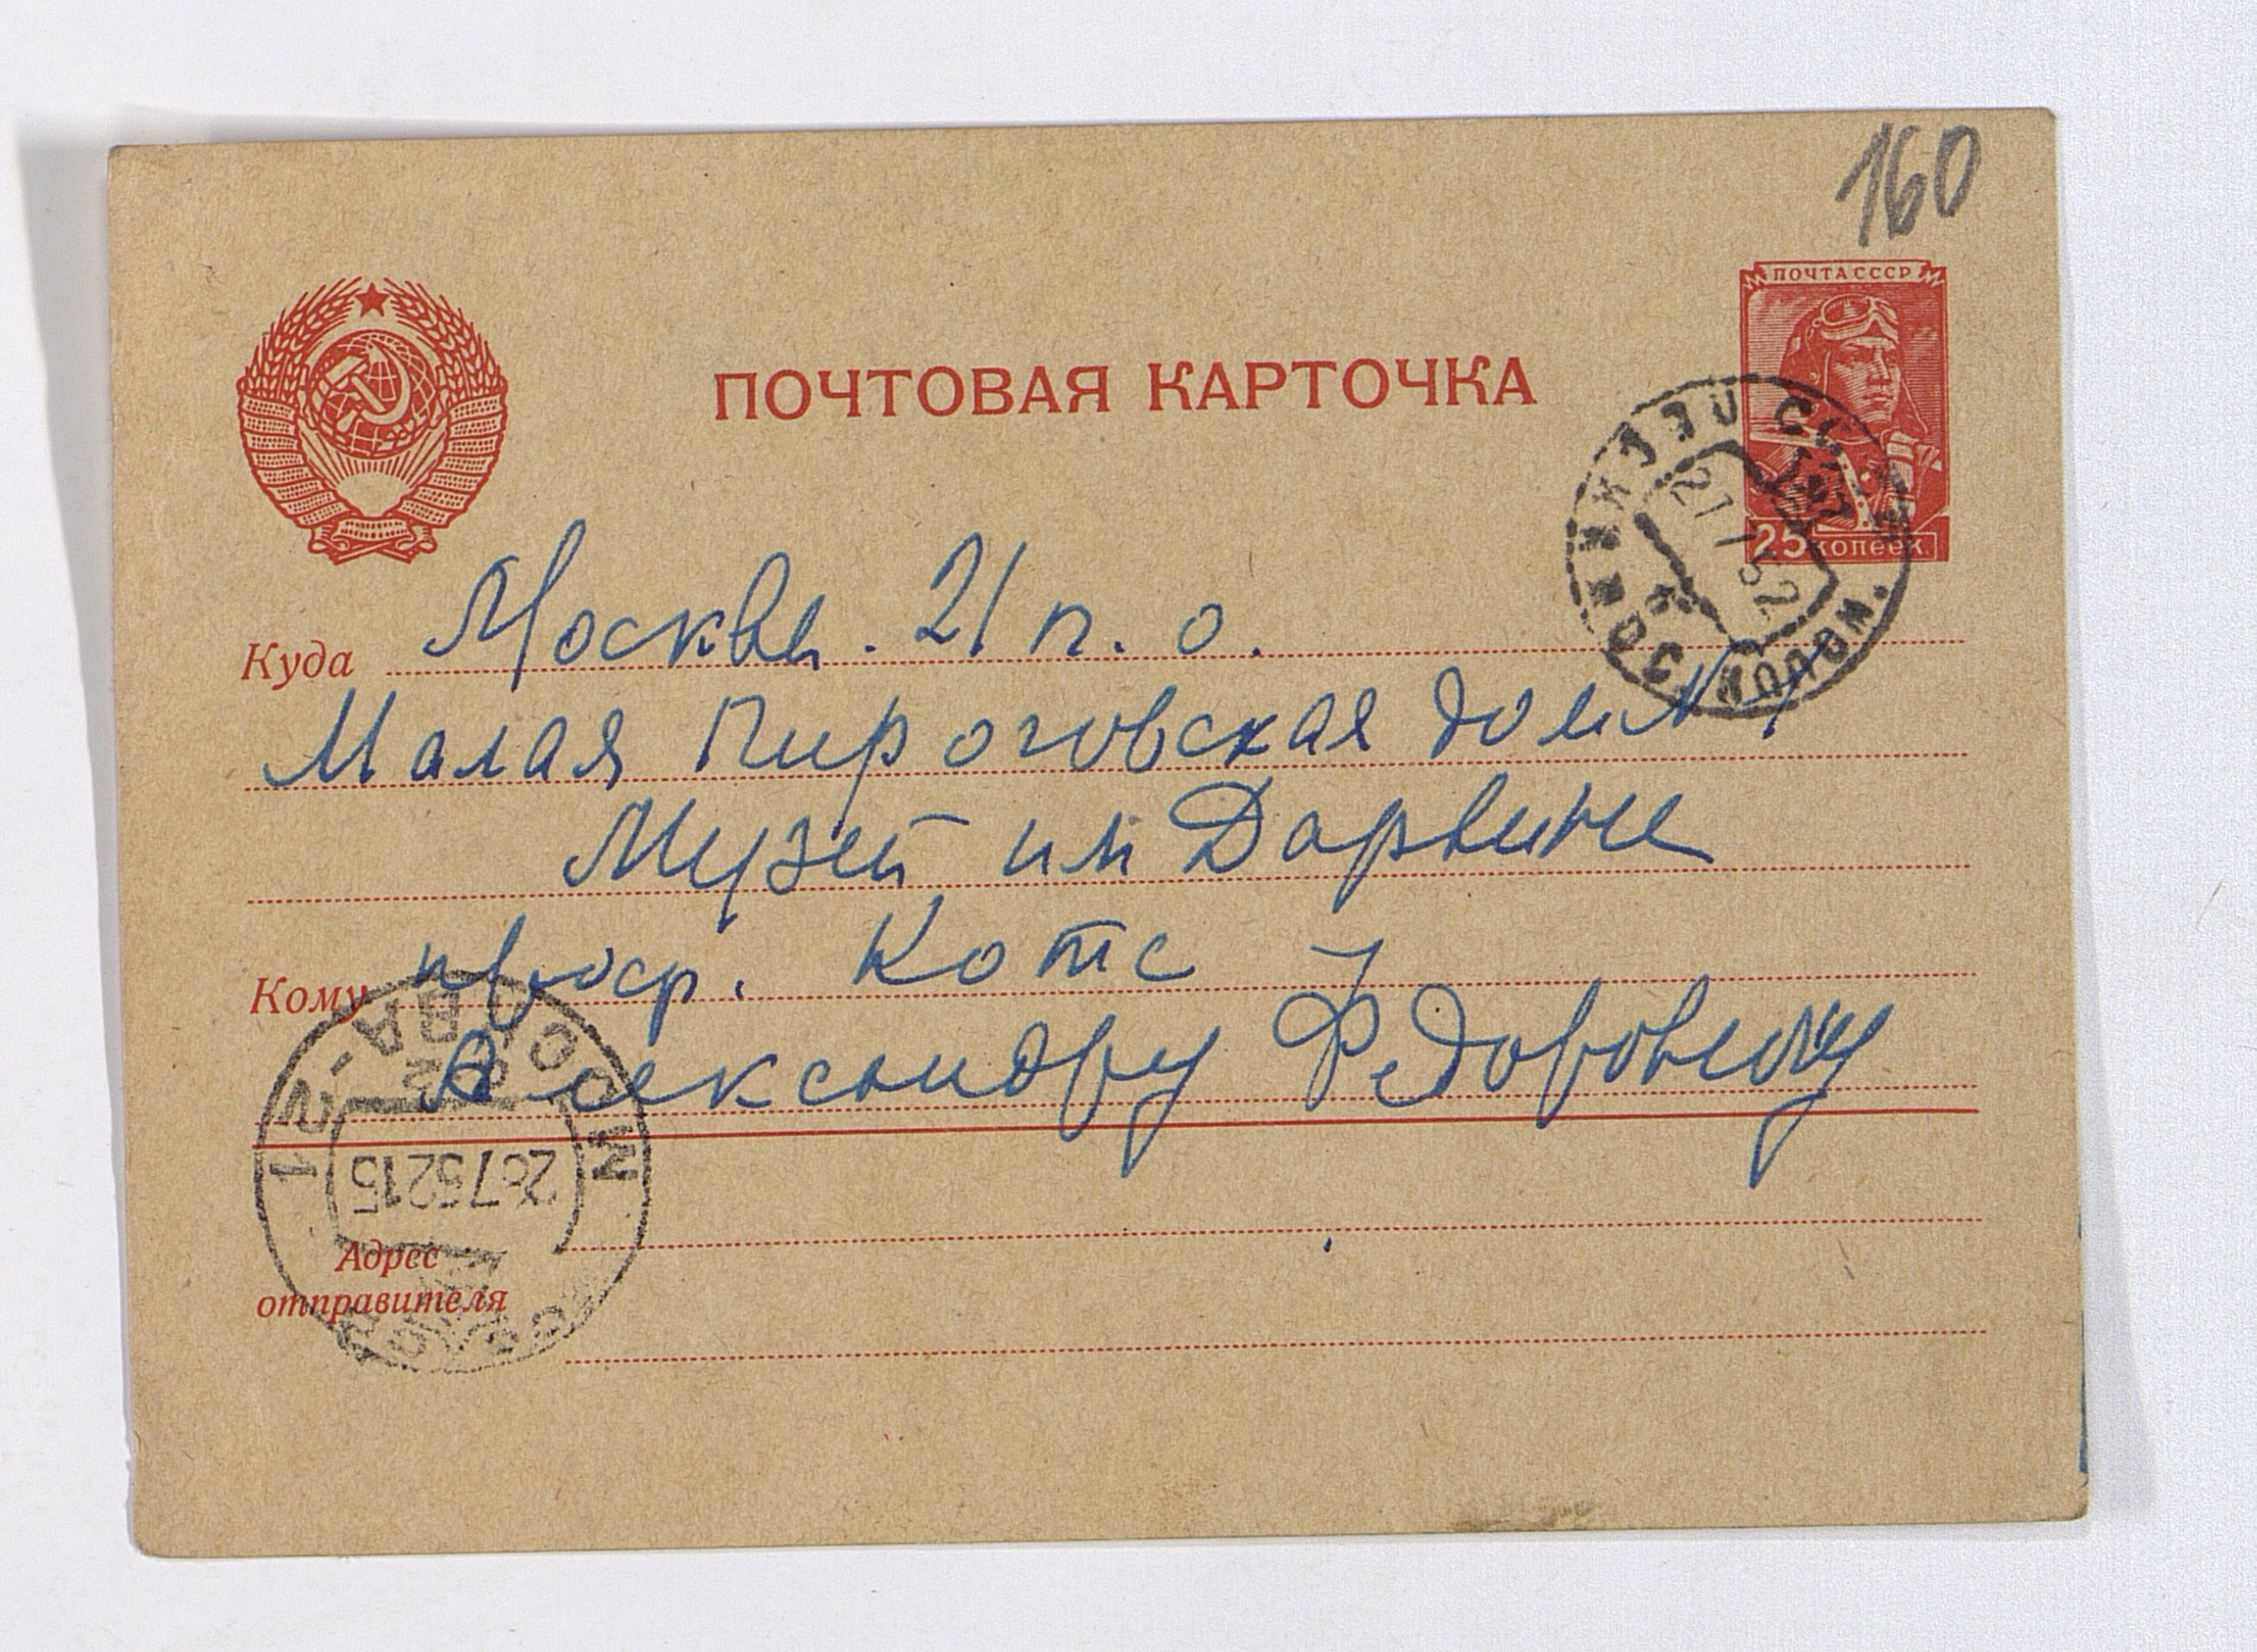 160
ПОЧТА СССР
ПОЧТОВАЯ КАРТОЧКА
25 копеек
21 7 52
Куда Москва. 21 п. о.
Малая Пироговская дом № 1
Музей им Дарвина
Кому проф. Котс
Александру Федоровичу
МОСКВА-21
26 7 52 15
Адрес
отправителя